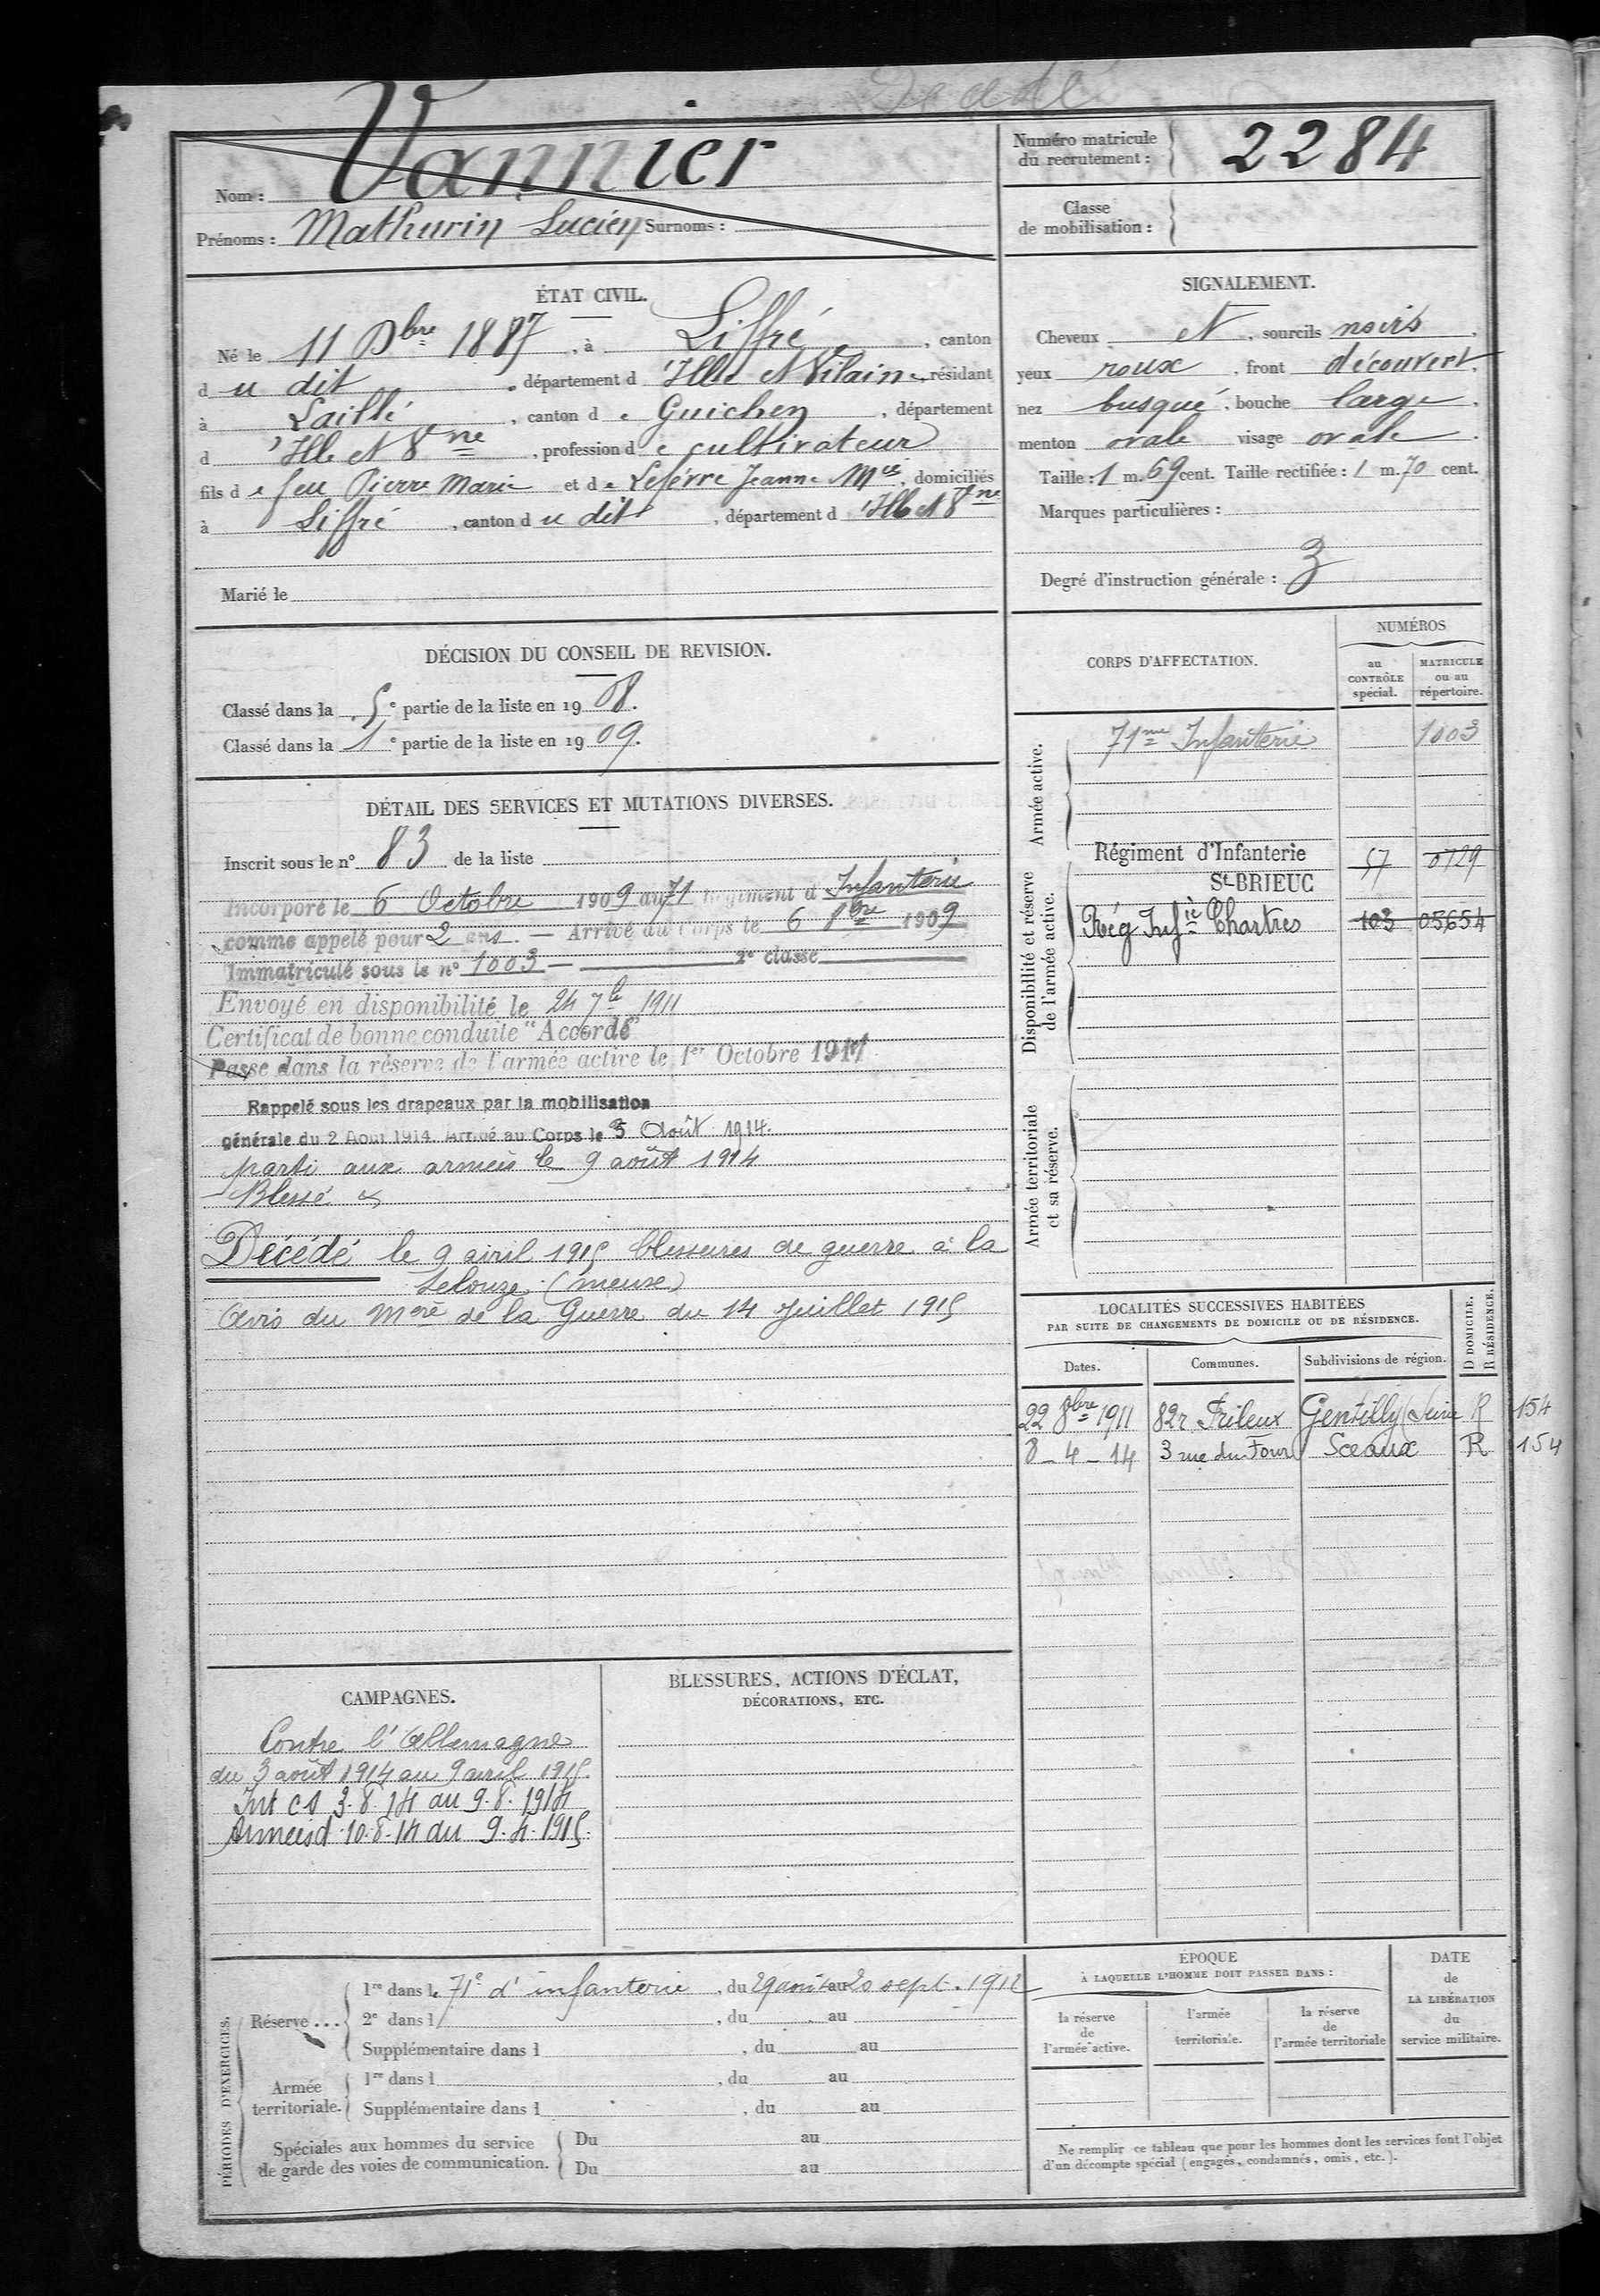 Décédé
Nom : Vannier
Prénoms : Mathurin Lucien Surnoms :
Numéro matricule du recrutement : 2284
Classe de mobilisation :
ÉTAT CIVIL.
Né le 11 Dbre 1887, à Liffré, canton
du dit, département d'Ille et Vilaine, résidant
à Laillé, canton de Guichen, département
d'Ille et Vne, profession de cultivateur
fils de feu Pierre Marie et de Lefévre Jeanne Mie, domiciliés
à Liffré, canton du dit, département d'Ille et Vne
Marié le
SIGNALEMENT.
Cheveux et, sourcils noirs,
yeux roux, front découvert,
nez busqué, bouche large,
menton ovale visage ovale.
Taille : 1 m. 69 cent. Taille rectifiée : 1 m. 70 cent.
Marques particulières :
Degré d'instruction générale : 3
DÉCISION DU CONSEIL DE REVISION.
Classé dans la 5e partie de la liste en 1908.
Classé dans la 1e partie de la liste en 1909.
DÉTAIL DES SERVICES ET MUTATIONS DIVERSES.
Inscrit sous le n° 83 de la liste
Incorporé le 6 Octobre 1909 au 71 Régiment d'Infanterie
comme appelé pour 2 ans. — Arrivé au Corps le 6 8bre 1909
Immatriculé sous le n° 1003 — 2e classe
Envoyé en disponibilité le 24 7be 1911
Certificat de bonne conduite "Accordé"
Passé dans la réserve de l'armée active le 1er Octobre 1911
Rappelé sous les drapeaux par la mobilisation
générale du 2 Août 1914. Arrivé au Corps le 3 Août 1914.
parti aux armées le 9 août 1914
Blessé
Décédé le 9 avril 1915 blessures de guerre à la
Selouze (meuse)
Avis du Mère de la Guerre du 14 Juillet 1915
CORPS D'AFFECTATION.
NUMÉROS
au CONTRÔLE spécial.
MATRICULE ou au répertoire.
Armée active.
71me Infanterie 1003
Disponibilité et réserve de l'armée active.
Régiment d'Infanterie 57 0729
St-BRIEUC
Rég Infie Chartres 103 05654
Armée territoriale et sa réserve.
LOCALITÉS SUCCESSIVES HABITÉES
PAR SUITE DE CHANGEMENTS DE DOMICILE OU DE RÉSIDENCE.
D DOMICILE.
R RÉSIDENCE.
Dates. Communes. Subdivisions de région.
22 8bre 1911 82 r. Frileux Gentilly (Seine R 154
8-4-14 3 rue du Four Sceaux R 154
CAMPAGNES.
Contre l'Allemagne
du 3 août 1914 au 9 avril 1915.
Int cs 3.8.14 au 9.8.1914
Armées d 10.8.14 au 9.4.1915.
BLESSURES, ACTIONS D'ÉCLAT,
DÉCORATIONS, ETC.
PÉRIODES D'EXERCICES.
Réserve...
1re dans le 71e d'infanterie, du 29 août au 20 sept. 1912
2e dans l , du au
Supplémentaire dans l , du au
Armée territoriale.
1re dans l , du au
Supplémentaire dans l , du au
Spéciales aux hommes du service
de garde des voies de communication.
Du au
Du au
ÉPOQUE
À LAQUELLE L'HOMME DOIT PASSER DANS :
la réserve de l'armée active.
l'armée territoriale.
la réserve de l'armée territoriale
DATE de LA LIBÉRATION du service militaire.
Ne remplir ce tableau que pour les hommes dont les services font l'objet
d'un décompte spécial (engagés, condamnés, omis, etc.).